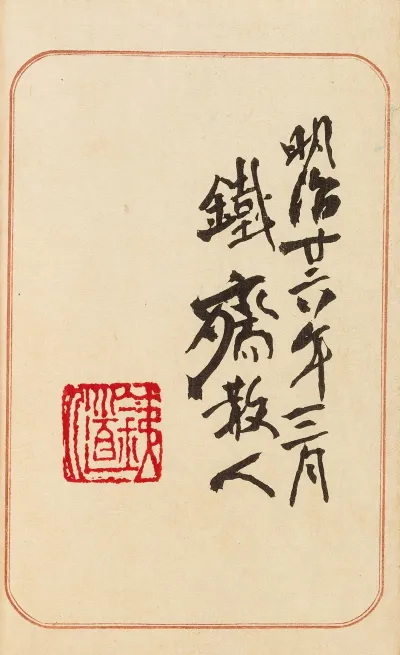 明治廿六年三月
鐵齋散人